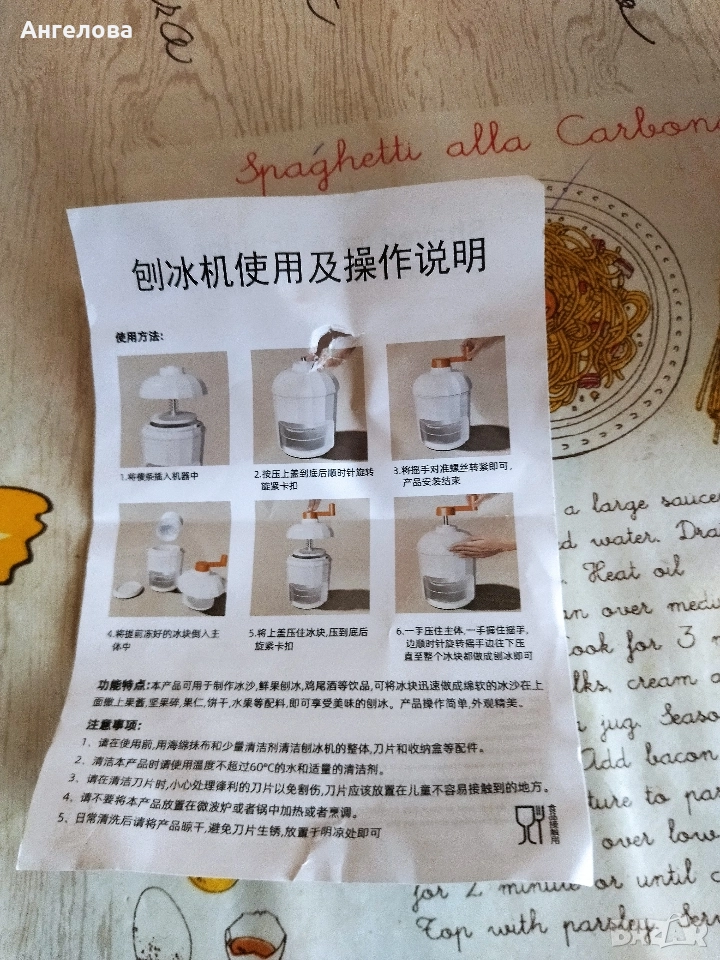 Ангелова
Spaghetti alla
刨冰机使用及操作说明
使用方法:
1.将棱条插入机器中
2.按压上盖到底后顺时针旋转
旋紧卡扣
3.将摇手对准螺丝转紧即可,
产品安装结束
4.将提前冻好的冰块倒入主
体中
5.将上盖压住冰块,压到底后
旋紧卡扣
6.一手压住主体,一手握住摇手,
边顺时针旋转摇手边往下压
直至整个冰块都做成刨冰即可
功能特点:本产品可用于制作冰沙,鲜果刨冰,鸡尾酒等饮品,可将冰块迅速做成绵软的冰沙在上
面撒上果酱,坚果碎,果仁,饼干,水果等配料,即可享受美味的刨冰。产品操作简单,外观精美。
注意事项:
1、请在使用前,用海绵抹布和少量清洁剂清洁刨冰机的整体,刀片和收纳盒等配件。
2、清洁本产品时请使用温度不超过60°C的水和适量的清洁剂。
3、请在清洁刀片时,小心处理锋利的刀片以免割伤,刀片应该放置在儿童不容易接触到的地方。
4、请不要将本产品放置在微波炉或者锅中加热或者烹调。
5、日常清洗后请将产品晾干,避免刀片生锈,放置于明凉处即可
食品接触用
a large
water.
Heat oil
over
for 3
cream a
jug.
Add bacon
to
over
for 2 minute or until
Top with parsley.
BAZAR